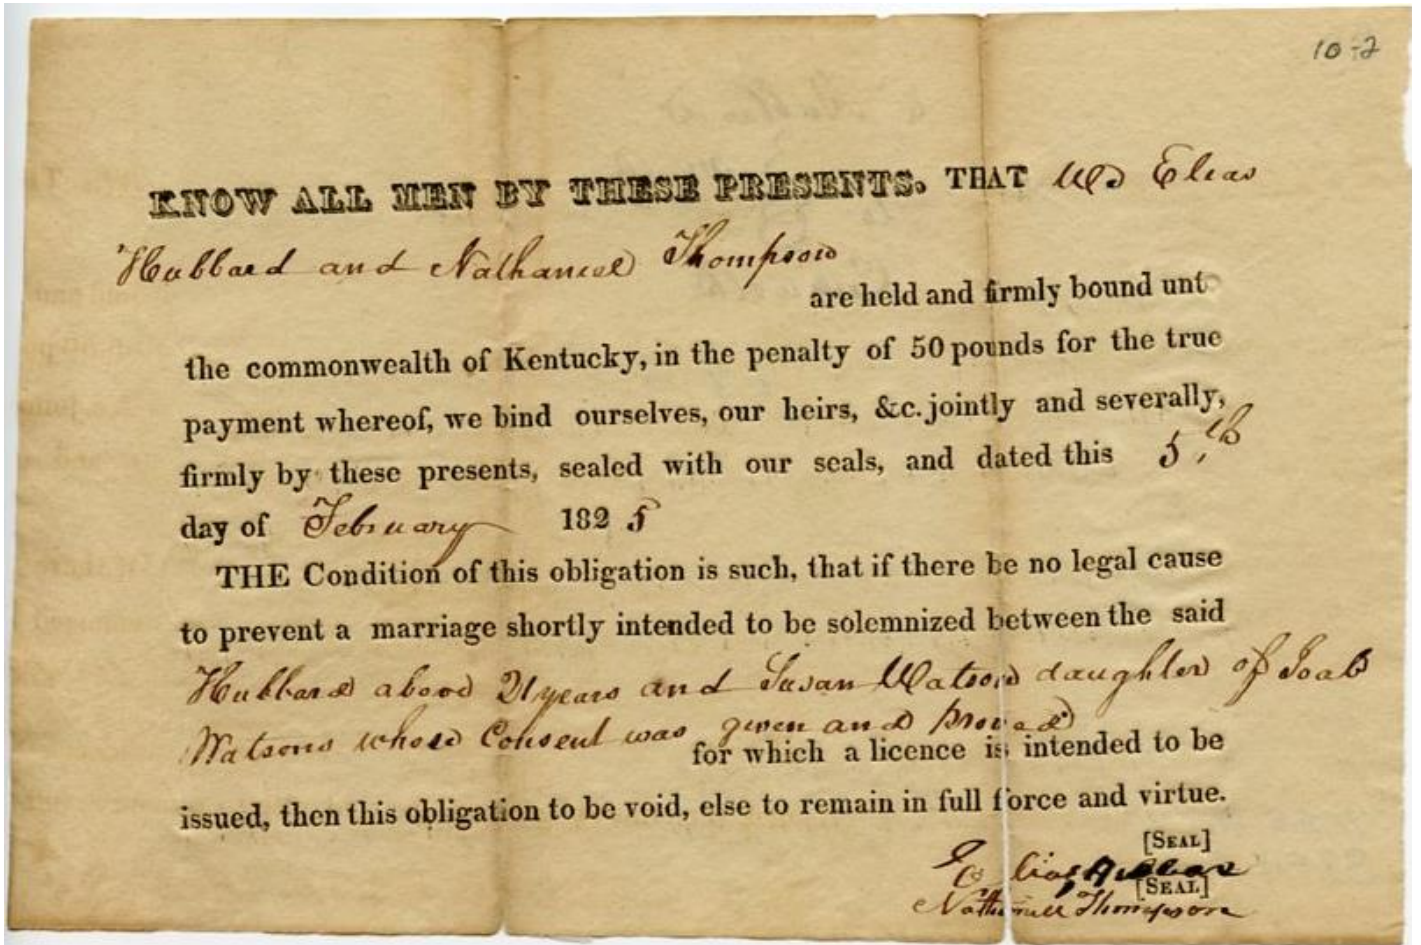 10-2
KNOW ALL MEN BY THESE PRESENTS, THAT We Elias
Hubbard and Nathaniel Thompson
are held and firmly bound unto
the commonwealth of Kentucky, in the penalty of 50 pounds for the true
payment whereof, we bind ourselves, our heirs, &c. jointly and severally,
firmly by these presents, sealed with our seals, and dated this 5th
day of February 1825
THE Condition of this obligation is such, that if there be no legal cause
to prevent a marriage shortly intended to be solemnized between the said
Hubbard above 21 years and Susan Watson daughter of Joab
Watson whose Consent was given and proved
for which a licence is intended to be
issued, then this obligation to be void, else to remain in full force and virtue.
[SEAL]
Elias Hubbard
[SEAL]
Nathaniel Thompson